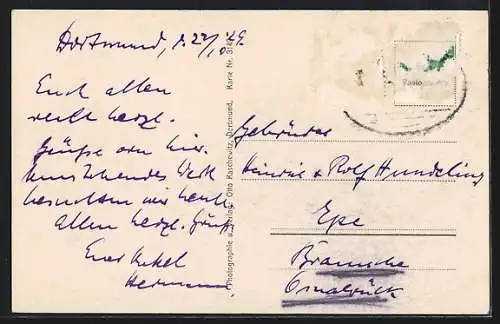 Dortmund, d. 22/10. 29.
Euch allen
recht herzl.
Grüße von hier.
Werk
besuchten wir heute
Allen herzl. Gruß
Euer Onkel
Hermann
Photographie u. Verlag: Otto Kaschewitz, Dortmund, Karte Nr.
Gebrüder
Heinrich & Rolf Hundeling
Epe
Bramsche
Osnabrück